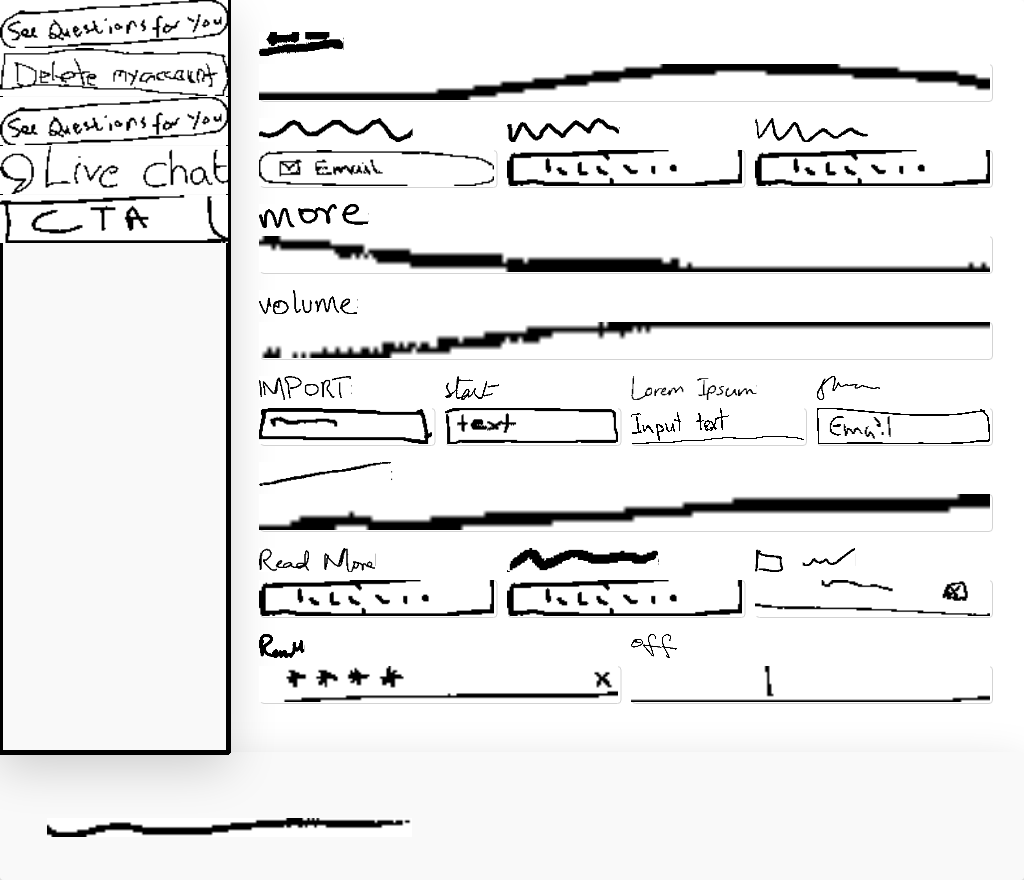 See Questions for You
Delete my account
See Questions for You
Live chat
CTA
Email
more
volume
IMPORT start Lorem Ipsum
text Input text Email
Read More
off
**** x